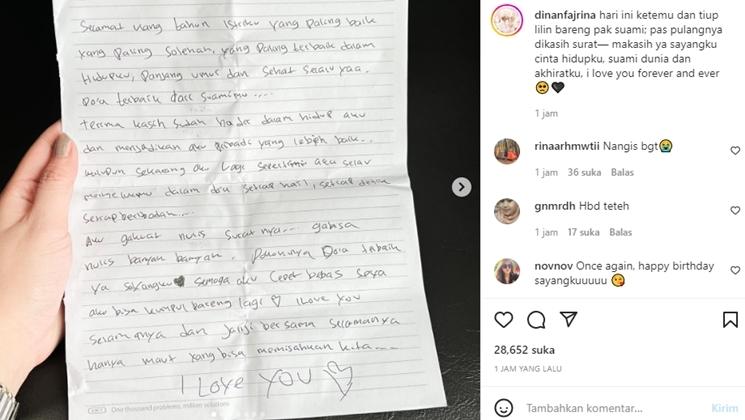 Selamat ulang tahun Istriku yang paling baik
yang paling Solehah, yang paling terbaik dalam
Hidupku, panjang umur dan sehat selalu yaa.
Doa terbaik dari suamimu....
terima kasih sudah hadir dalam hidup aku
dan menjadikan aku pribadi yang lebih baik..
walupun sekarang aku lagi seperti ini aku selalu
dalam doa setiap hari, setiap
setiap beribadah....
Aku gakuat nulis suratnya... gabisa
nulis banyak banyak. Pokonya Doa terbaik
ya sayangku🖤 semoga aku cepet bebas supaya
aku bisa kumpul bareng lagi ♡ I love you
selamanya dan janji bersama selamanya
hanya maut yang bisa memisahkan kita....
I LOVE YOU ♡
One thousand problems, million solutions
dinanfajrina hari ini ketemu dan tiup
lilin bareng pak suami; pas pulangnya
dikasih surat— makasih ya sayangku
cinta hidupku, suami dunia dan
akhiratku, i love you forever and ever
🥺🖤
1 jam
rinaarhmwtii Nangis bgt😭
1 jam 36 suka Balas
gnmrdh Hbd teteh
1 jam 17 suka Balas
novnov Once again, happy birthday
sayangkuuuuu 😘
28,652 suka
1 JAM YANG LALU
Tambahkan komentar... Kirim